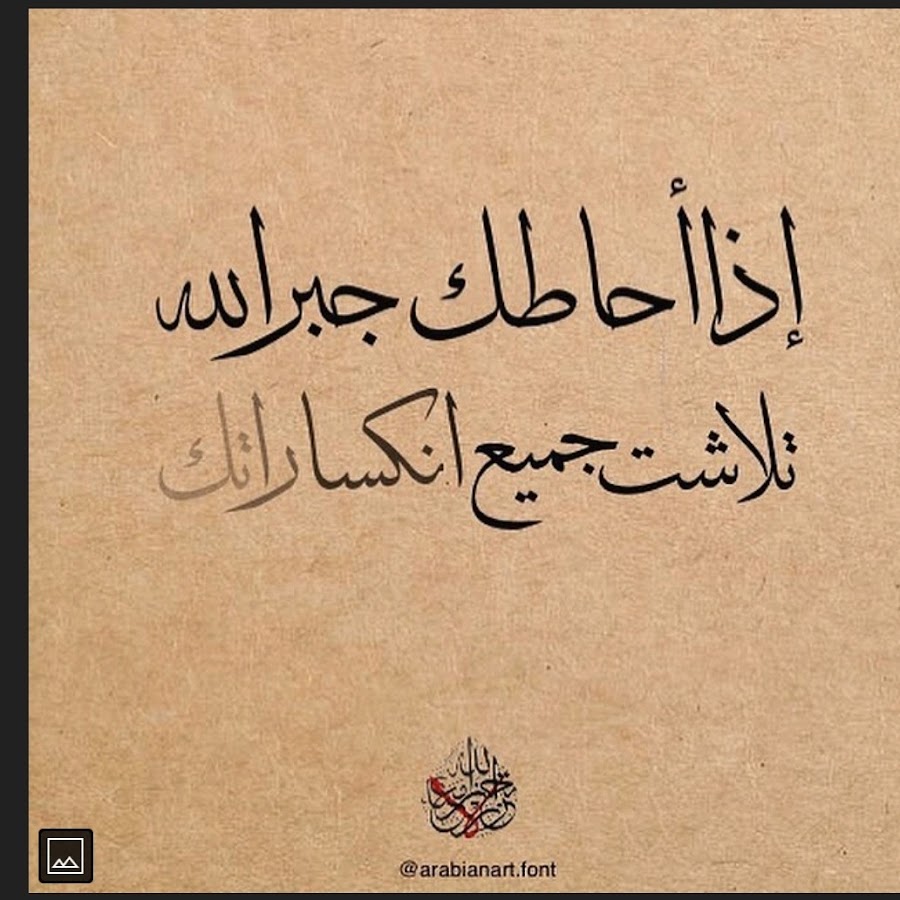 إذا أحاطك جبر الله
تلاشت جميع انكساراتك
@arabianart.font